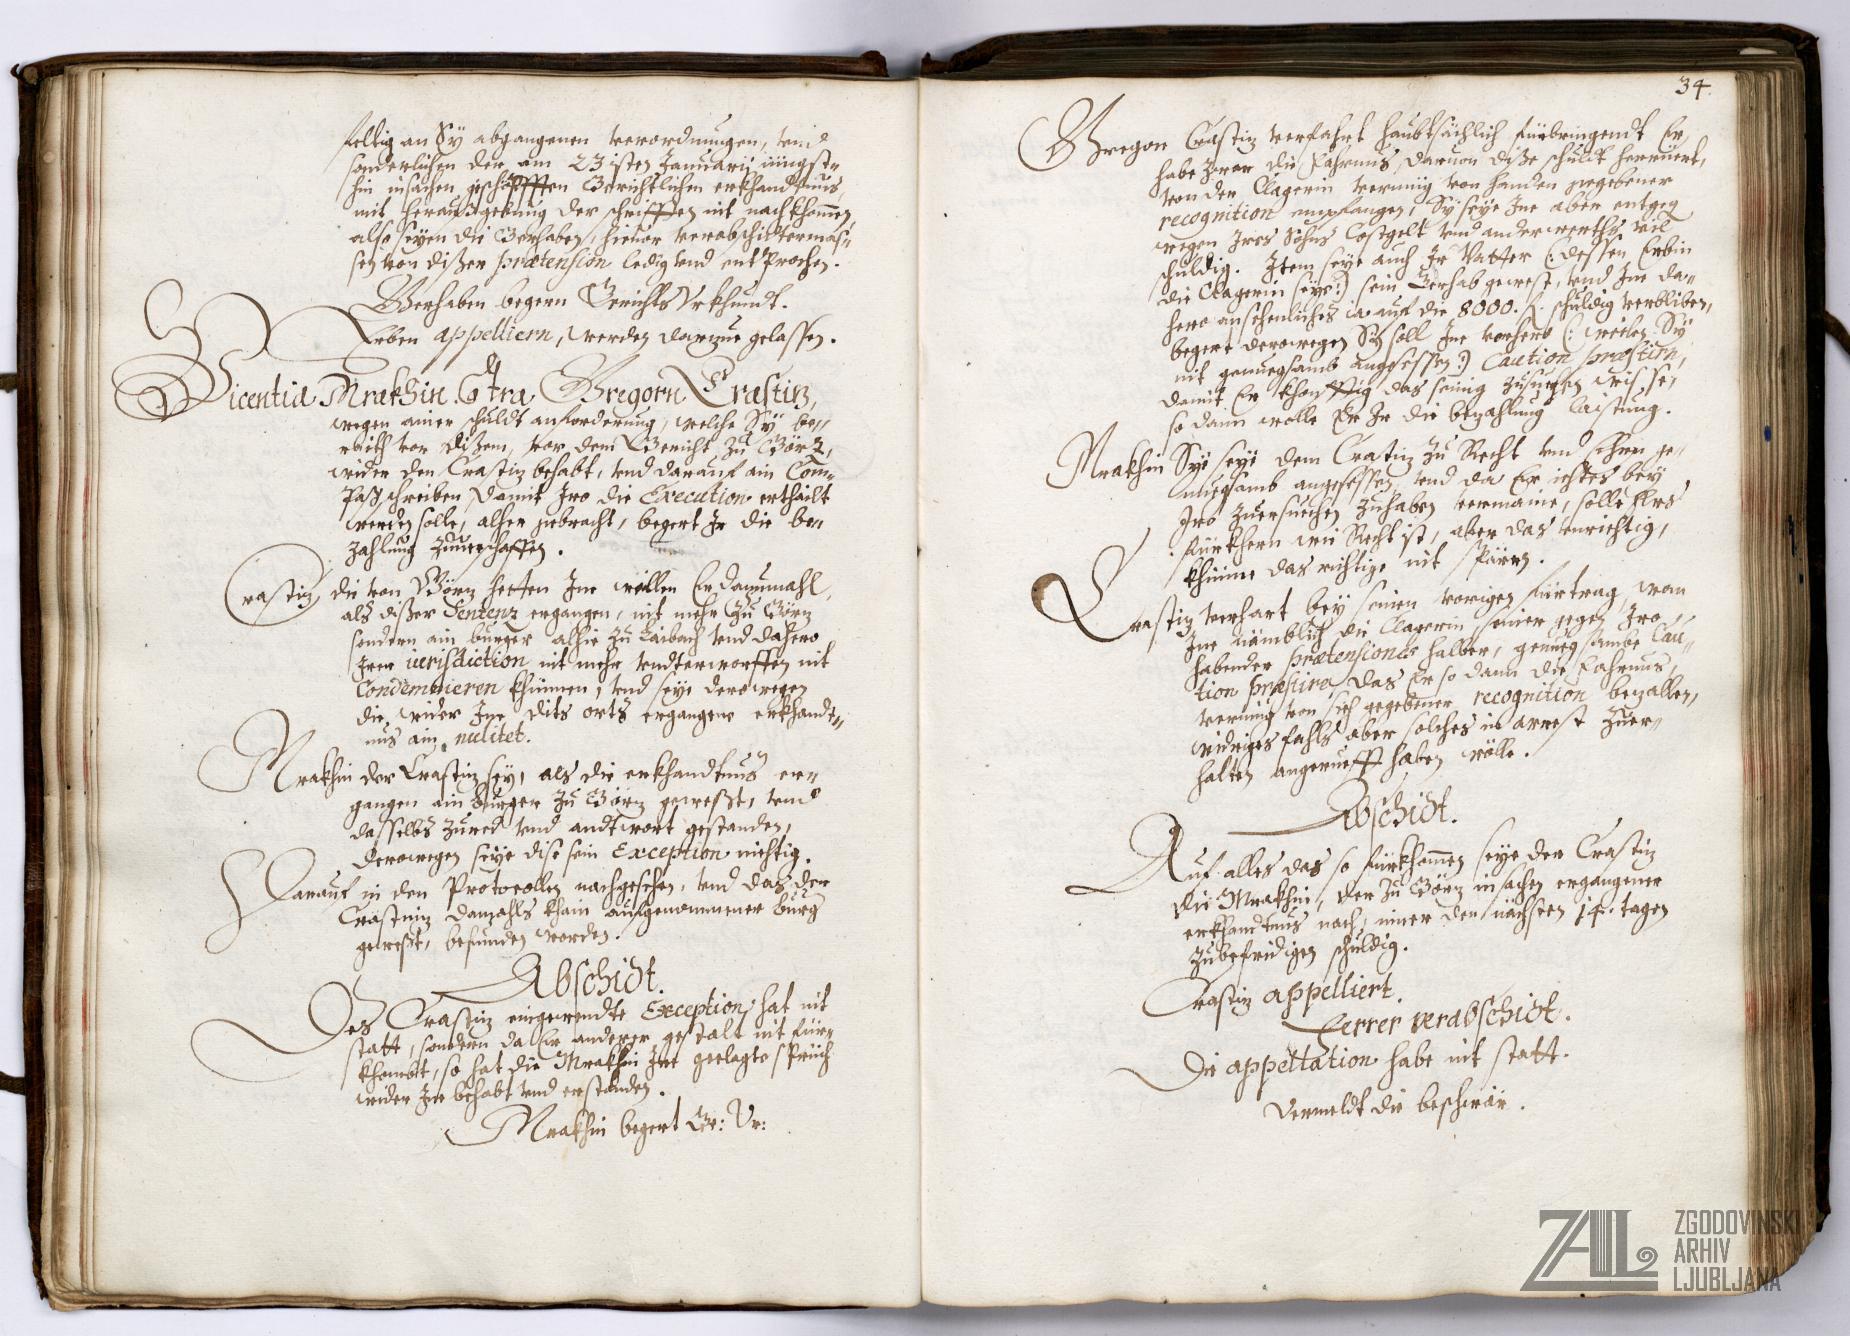 feltig an Sÿ abgangenen verordnungen, vnd
sonderlichen der am 23isten Januarij jüngst-
hin in sachen geschöpfften Gerichtlichen erkhandtnus,
mit herausgebung der schrifften nit nachkhommen,
also seyen die Gerhaben, hieuor verabschidtermas-
sen von dißer prætension ledig vnd endtprochen.
Gerhaben begern Gerichts Vrkhundt.
Erben appelliern, werden darzue gelassen.
Vicentia Mrakhin Contra Gregorn Crastiz,
wegen ainer schuldt anforderung, welche Sÿ be-
reith vor dißem, vor dem Gericht zu Görz,
wider den Crastiz behabt, vnd darauf ain Com-
paß schreiben, damit Iro die Execution ertheilt
werden solle, alher gebracht, begert Ir die be-
zahlung zuuerschaffen.
Crastiz, die von Görz hetten Ine weillen Er damahl,
als dißer Sentenz ergangen, nit mehr zu Görz
sondern ain burger alhie zu Laibach vnd dahero
Irer jurisdiction nit mehr vndterworffen nit
Condemnieren khünnen, vnd seye derowegen
die, wider Ine dits orts ergangene erkhandt-
nus ain nulitet.
Mrakhin der Crastiz seÿ, als die erkhandtnus er-
gangen ain burger zu Görz gewest, vnd
dasselbs zured vnd andtwort gestanden,
derowegen seye dise sein Exception nichtig.
Darauf in den Protocollen nachgesehen, vnd das der
Crastniz damahls khain aufgenommener burger
gewest, befunden worden.
Abschidt.
Des Crastiz eingewendte Exception, hat nit
statt, sondern da Er anderer gestalt nit für-
khombt, so hat die Mrakhin Ire geclagte sprüch
wider Ine behabt vnd erstanden.
Mrakhin begert Ge: Vr:
34.
Gregor Crastiz verfahrt haubtsächlich fürbringendt Er
habe zwar die Fahrnus, daruon diße schuldt herrüert,
von der Clagerin vermüg von handen gegebener
recognition empfangen, Sÿ seye Ine aber entgegen
wegen Ires Sohns Costgelt vnd anderwerths vil
schuldig. Item seye auch Ir Vatter (: dessen Erbin
die Clagerin seye :) sein Gerhab gewest, vnd Ine da-
hero ansehenliches ia auf die 8000. f. schuldig verbliben,
begere derowegen Sÿ soll Ine vorhero (: weilen Sÿ
nit genuegsamb angesessen :) Caution præstirn,
damit Er khonfftig das seinig zusuechen wisse,
so dann wolle Er Ir die bezahlung laistung.
Mrakhin Sÿe seye dem Crastiz zu Recht vnd ge-
nuegsamb angesessen, vnd da Er ichtes beÿ
Iro zuersuechen zuhaben vermaine, solle Ers
fürkhern wie Recht ist, aber das vnrichtig,
khünne das richtige nit spären.
Crastiz verhart beÿ seinen vorigen fürtrag, wan
Ine nämblich die Clagerin seiner gegen Iro
habender prætensiones halber, genuegsambe Cau-
tion præstire, das Er so dann die Fahrnus,
vermüg von sich gegebener recognition bezallen,
widriges fahls aber solches in arrest zuer-
halten angerüefft haben wölle.
Abschidt.
Auf alles das so fürkhommen seye der Crastiz
die Mrakhin, der zu Görz in sachen ergangener
erkhandtnus nach, inner den nächsten 14. tagen
zubefridigen schuldig.
Crastiz appelliert.
Ferrer verabschidt.
Die appellation habe nit statt.
Vermeldt die beschwär.
ZAL
ZGODOVINSKI
ARHIV
LJUBLJANA